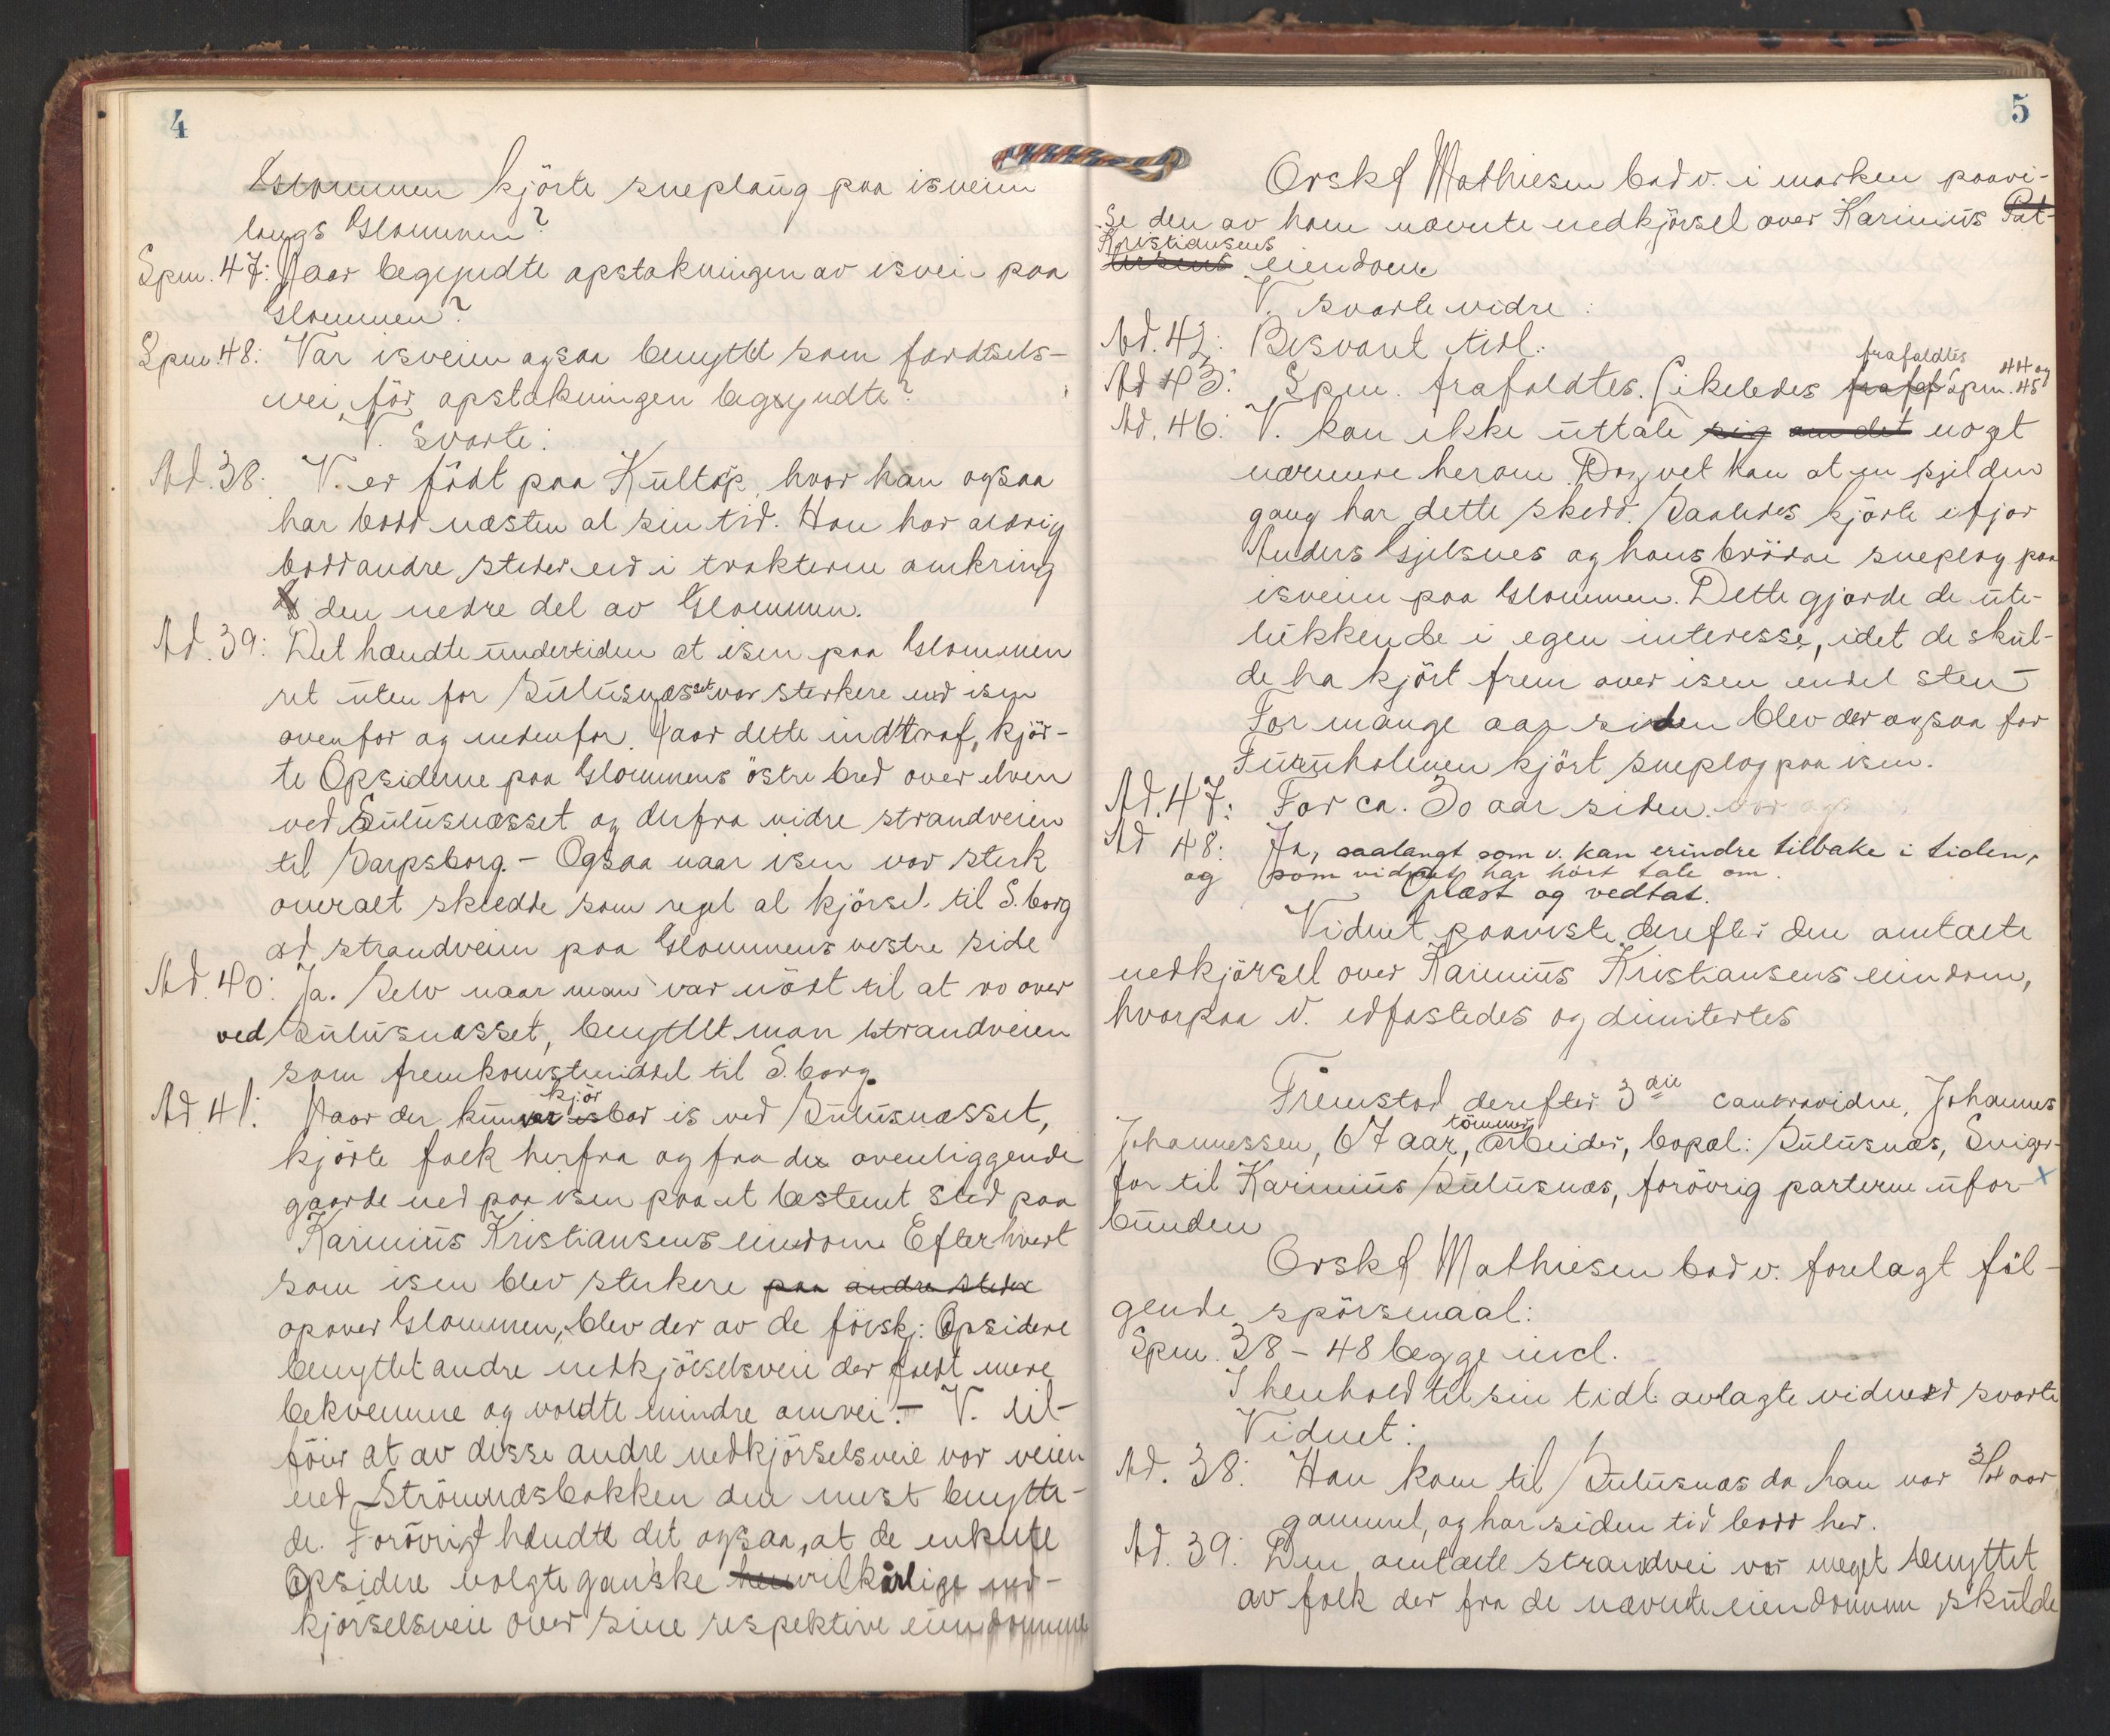 4
Glommen kjörte sneplaug paa isveien
langs Glommen?
Spm. 47: Naar begyndte opstakningen av isvei paa
Glommen?
Spm. 48: Var isveien ogsaa benyttet som færdsels-
vei för opstakningen begyndte?
V. svarte:
Ad. 38: V. er födt paa Kultop, hvor han ogsaa
har bodd næsten al sin tid. Han har aldrig
bodd andre steder end i trakterne omkring
den nedre del av Glommen.
Ad. 39: Det hændte undertiden at isen paa Glommen
ret uten for Sulusnæsset var sterkere end isen
ovenfor og nedenfor. Naar dette indtraf, kjör-
te Opsiderne paa Glommens östre bred over elven
ved Sulusnæsset og derfra vidre strandveien
til Sarpsborg. – Ogsaa naar isen var sterk
overalt skedde som regel al kjörsel til S.borg
ad strandveien paa Glommens vestre side
Ad. 40: Ja. Selv naar man var nödt til at ro over
ved Sulusnæsset, benyttet man strandveien
som fremkomstmiddel til S.borg.
Ad. 41: Naar der kun var kjörbar is ved Sulusnæsset,
kjörte folk herfra og fra de ovenliggende
gaarde ned paa isen paa et bestemt sted paa
Karinius Kristiansens eiendom. Efterhvert
som isen blev sterkere paa andre steder
opover Glommen, blev der av de forskj: Opsidere
benyttet andre nedkjörselsveie der faldt mere
bekvemme og voldte mindre omvei. – V. til-
föier at av disse andre nedkjörselsveie var veien
ved Strömnæsbakken den mest benytte-
de. Forövrigt hændte det ogsaa, at de enkelte
Opsidere valgte ganske vilkårlige ned-
kjörselsveie over sine respektive eiendomme
5
Orskf Mathiesen bad v. i marken paavi-
se den av ham nævnte nedkjörsel over Karinius Pet-
Kristiansens
eiendom
V. svarte vidre:
Ad. 42: Besvaret tidl.
Ad 43: Spm. frafaldtes. Likeledes frafaldtes Spm. 44 og 45
Ad. 46: V. kan ikke uttale sig om det nogt
nærmere herom. Dog vet han at en sjelden
gang har dette skedd. Saaledes kjörte ifjor
Anders Gjelsnes og hans brödre sneplog paa
isveien paa Glommen. Dette gjorde de ute-
lukkende i egen interesse, idet de skul-
de ha kjört frem over isen endel sten –
For mange aar siden blev der ogsaa for
Furuholmen kjört sneplog paa isen.
Ad. 47: For ca. 30 aar siden.
Ad 48: Ja, saalangt som v. kan erindre tilbake i tiden,
og som vidnet har hört tale om.
Oplæst og vedtat.
Vidnet paaviste derefter den omtalte
nedkjörsel over Karinius Kristiansens eiendom,
hvorpaa v. edfæstedes og dimitertes
Fremstod derefter 3die contravidne, Johannes
Johannessen, 67 aar, tömmerarbeider, bopæl: Sulusnæs, Sviger-
far til Karinius Sulusnæs, forövrig parterne ufor-
bunden
Orskf Mathiesen bad v. forelagt föl-
gende spörsmaal:
Spm. 38 – 48 begge incl.
I henhold til sin tidl. avlagte vidneed svarte
Vidnet:
Ad. 38: Han kom til Sulusnæs da han var 3/4 aar
gammel, og har siden tid bodd her.
Ad. 39: Den omtalte strandvei var meget benyttet
av folk der fra de nævnte eiendomme skulde